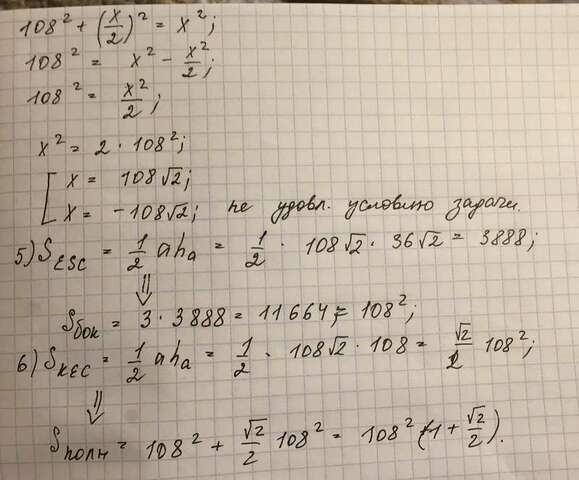 108² + (x/2)² = x²;
108² = x² - x²/2;
108² = x²/2;
x² = 2 · 108²;
[ x = 108√2;
x = -108√2; не удовл. условию задачи.
5) S_ESC = 1/2 ah_a = 1/2 · 108√2 · 36√2 = 3888;
⇓
S_бок = 3 · 3888 = 11664 = 108²;
6) S_KEC = 1/2 ah_a = 1/2 · 108√2 · 108 = √2/2 108²;
⇓
S_полн = 108² + √2/2 108² = 108² (1 + √2/2).